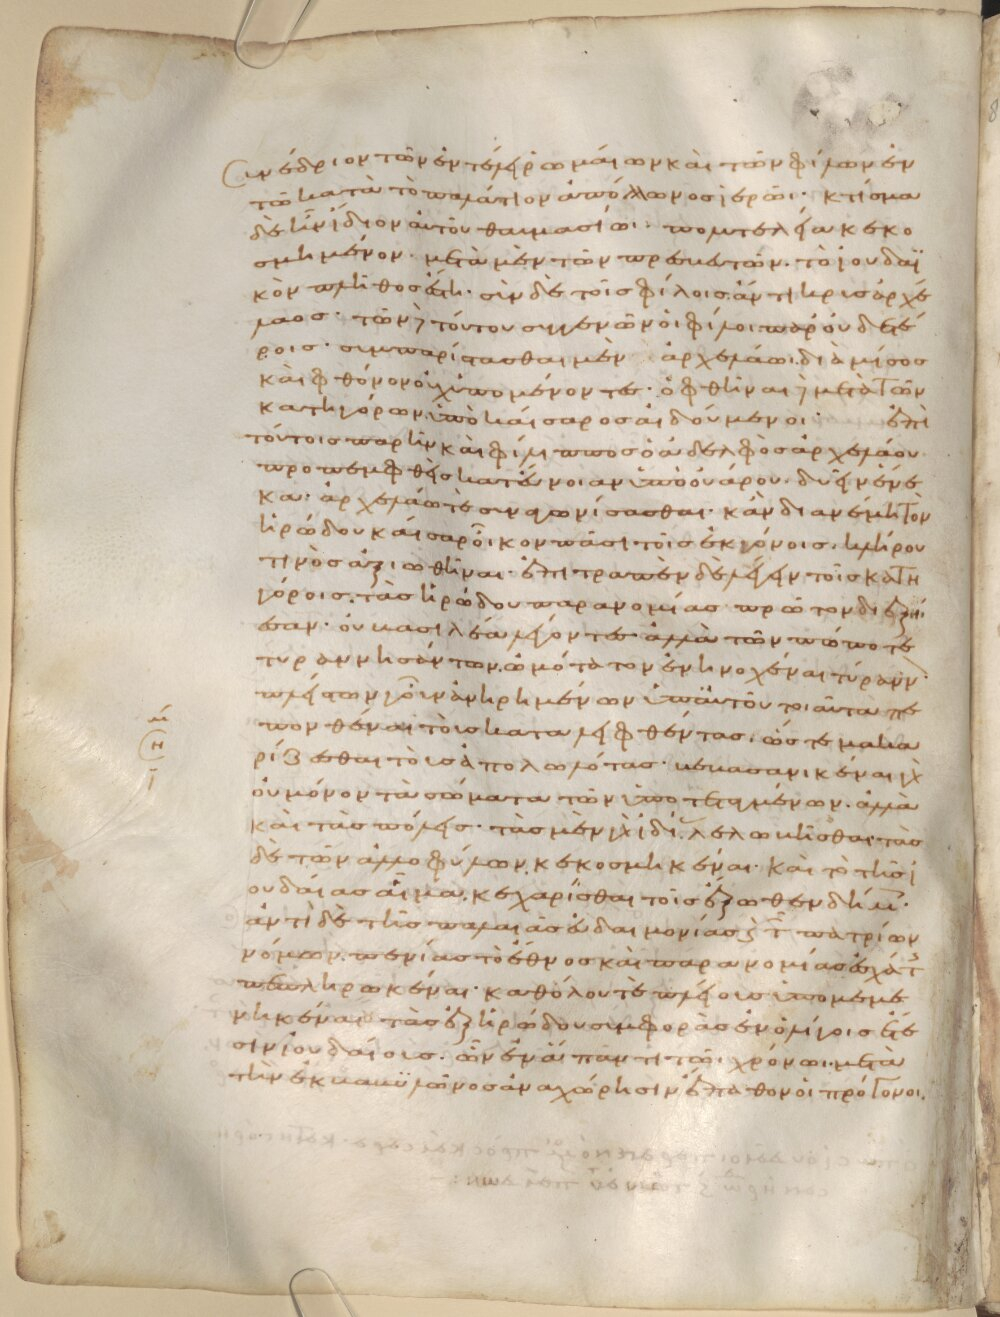 Συνέδριον τῶν ἐν τέλει ῥωμάιων καὶ τῶν φίλων ἐν
τῶ κατὰ τὸ παλάτιον ἀπόλλωνος ἱερῶι· κτίσμα
δὲ ἦν ἴδιον ἀυτοῦ θαυμασίωι· πολυτελεία κεκο
σμημένον· μετὰ μὲν τῶν πρεσβευτῶν. τὸ ἰουδαϊ
κὸν πλῆθος ἔστη· σὺν δὲ τοῖς φίλοις ἄντικρυς ἀρχέ
λαος· τῶν δὲ τούτου συγγενῶν ὁι φίλοι παρ' ουδετέ
ροις· συμπαρίστασθαι μὲν ἀρχελάωι διὰ μίσος
καὶ φθόνον ὀυχ ὑπομένοντες· ὀφθῆναι δὲ μετὰ τῶν
κατηγόρων ὑπὸ καίσαρος αἰδούμενοι· ἐπὶ
τούτοις παρῆν καὶ φίλιππος ὁ ἀδελφὸς ἀρχελάου
προπεμφθεὶς κατ' έυνοιαν ὑπὸ ὀυάρου. δυεῖν ἕνε
κα· ἀρχελάω τε συναγωνίσασθαι· κὰν διανέμη τὸν
ἡρώδου κάισαρ οἶκον πᾶσι τοῖς ἐκγόνοις. κλήρου
τινὸς ἀξιωθῆναι· ἐπιτραπὲν δε λέγειν τοῖς κατη
γόροις. τὰς ἡρώδου παρανομίας πρῶτον διεξήι
εσαν· ὀυ βασιλέα λέγοντες· ἀλλὰ τῶν πώποτε
τυραννησάντων. ὠμότατον ἐνηνοχέναι τύρανν
πλείστων γοῦν ἀνηρημένων ὑπ' αὐτοῦ τοιαῦτα πε
πονθέναι τὸυς καταλειφθέντας. ὥστε μακα
ρίζεσθαι τὸυς ἀπολωλότας· βεβασανικέναι γὰρ
ὀυ μόνον τὰ σώματα τῶν ὑποτεταγμένων. ἀλλὰ
καὶ τὰς πόλεις· τὰς μὲν γὰρ ἰδίας λελωβῆσθαι τὰς
δὲ τῶν ἀλλοφύλων. κεκοσμηκέναι· καὶ τὸ τῆς ἰ
ουδάιας αἷμα. κεχαρίσθαι τοῖς ἔξωθεν δήμοις·
ἀντὶ δὲ τῆς παλαιᾶς ἐυδαιμονίας καὶ τῶν πατρίων
νόμων. πενίας τὸ ἔθνος καὶ παρανομίας ἐσχάτης
πεπληρωκέναι· καθόλου τε πλείους ὑπομεμε
νηκέναι τὰς ἐξ ἡρώδου συμφορὰς ἐν ὀλίγοις ἔτε
σιν ἰουδαίους. ὧν ἐν ἅπαντι τῶι χρόνωι. μετὰ
τὴν ἐκ βαβυλῶνος ἀναχώρησιν ἔπαθον ὁι πρόγονοι.